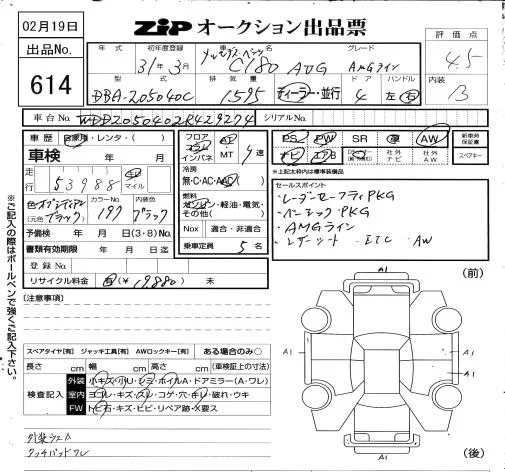 02月19日
ZIP オークション出品票
評価点
4.5
内装
B
出品No.
614
年式 初年度登録 車名 グレード
31年3月 メルセデス・ベンツ C180 AMG AMGライン
型式 排気量 ドア ハンドル
DBA-205040C 1595 ディーラー・並行 4 左 右
車台No. WDD2050402R429274 シリアルNo.
車歴 自家用・レンタ・( )
車検 年 月
走行 53988 km マイル
色 オブシディアン
(元色 ブラック)
カラーNo. 197
内装色 ブラック
予備検 年 月 日(3・8)No.
書類有効期限 年 月 日迄
登録No.
リサイクル料金 有(¥19880) 未
フロア コラム インパネ AT MT 9速
冷房
無・C・AC・AAC
燃料
ガソリン・軽油・電気・その他( )
Nox 適合・非適合
乗車定員 5名
PS PW SR 革 AW
ナビ エアB 社外ナビ 社外AW
新車時保証書
スペアキー
*上記太枠内は標準装備品
セールスポイント
・レーダーセーフティPKG
・ベーシックPKG
・AMGライン
・レザーシート ETC AW
※ご記入の際はボールペンで強くご記入下さい。
[注意事項]
スペアタイヤ[有] ジャッキ工具[有] AWロックキー[有] ある場合のみ○
長さ cm 幅 cm 高さ cm (車検証上の寸法)
検査記入
外装 小キズ・小U・シミ・ホイルA・ドアミラー(A・ワレ)
室内 ヨゴレ・キズ・スレ・コゲ・穴・キレ・破れ・ウキ
FW トビ石・キズ・ヒビ・リペア跡・X要ス
外装ウスA
タッチパッドワレ
(前)
A1
A1
A1
A1
(後)